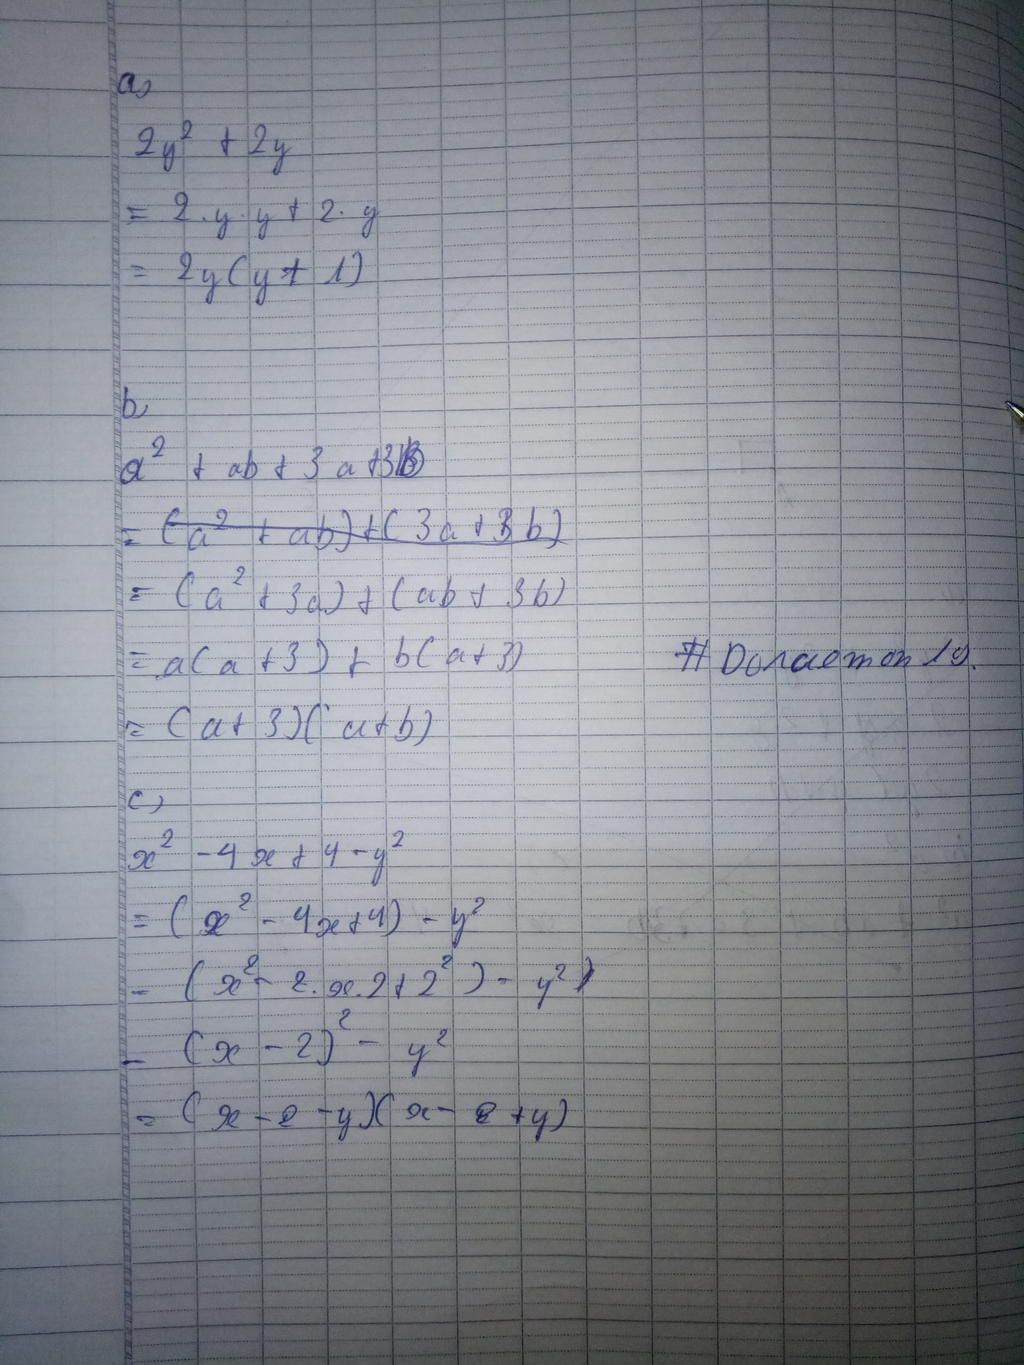 a,
2y² + 2y
= 2.y.y + 2.y
= 2y(y + 1)
b,
a² + ab + 3a + 3b
= (a² + ab) + (3a + 3b)
= (a² + 3a) + (ab + 3b)
= a(a + 3) + b(a + 3)
= (a + 3)(a + b)
c,
x² - 4x + 4 - y²
= (x² - 4x + 4) - y²
= (x² - 2.x.2 + 2²) - y²
= (x - 2)² - y²
= (x - 2 - y)(x - 2 + y)